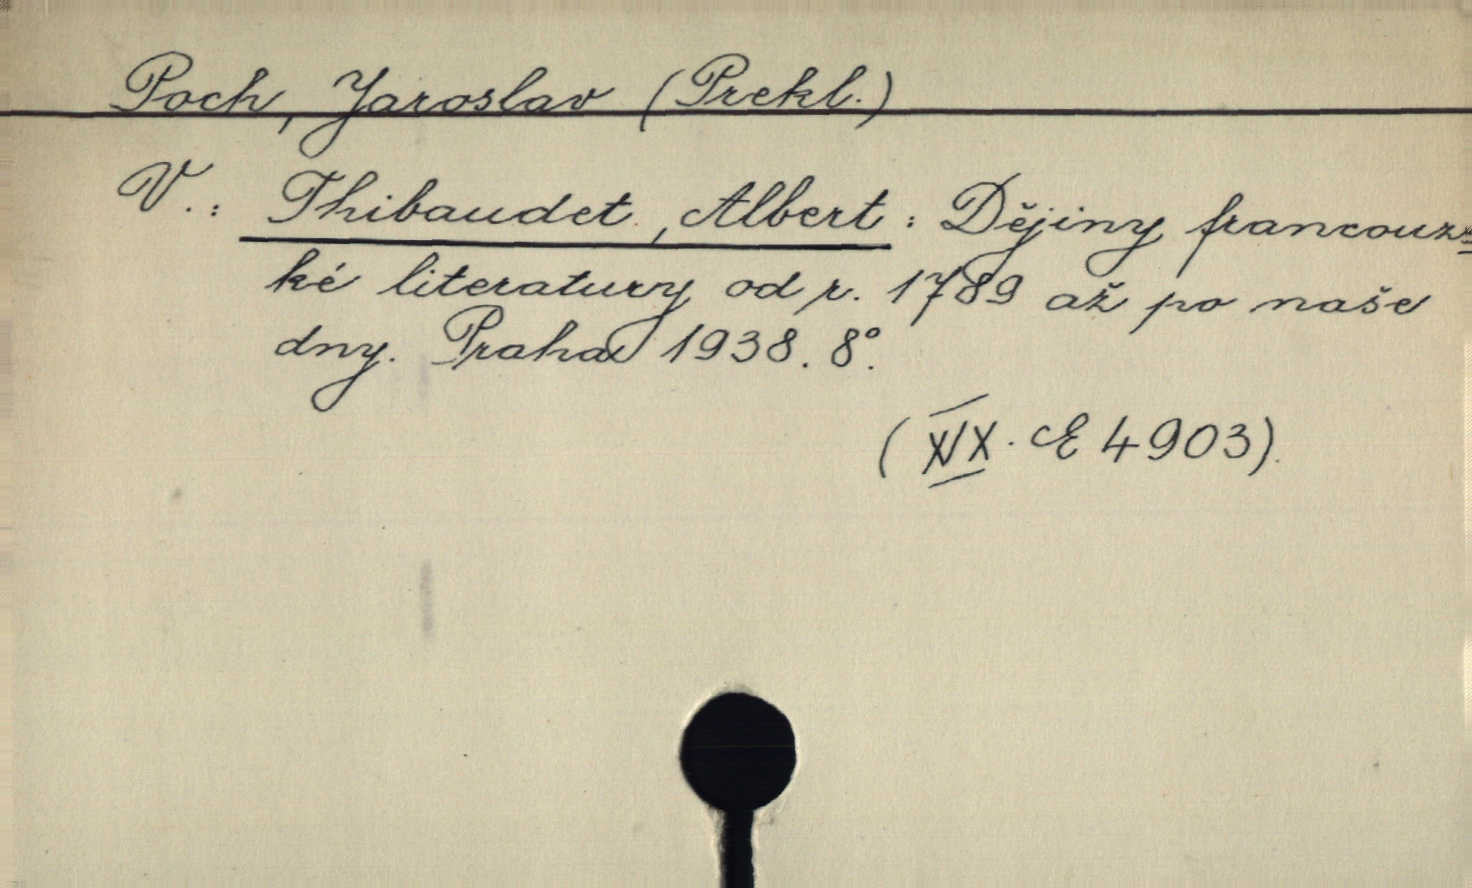 Poch, Jaroslav (Prekl.)
V.: Thibaudet, Albert: Dějiny francouz=
ké literatury od r. 1789 až po naše
dny. Praha 1938. 8°.
(XIX. E 4903).